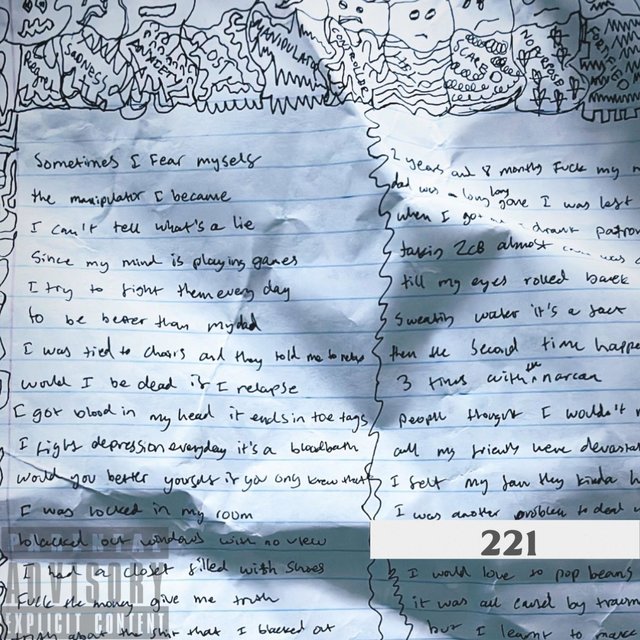 SADNESS
LOST
MANIPULATOR
SCARS
NO PURPOSE
Sometimes I Fear myself
the manipulator I became
I can't tell what's a lie
Since my mind is playing games
I try to fight them every day
to be better than my dad
I was tied to chairs and they told me to
would I be dead if I relapse
I got blood in my head it ends in toe tags
I fight depression everyday it's a bloodbath
would you better yourself if you only knew that
I was locked in my room
blacked out windows with no view
I had a closet filled with shoes
Fuck the money give me truth
truth about the shit that I blacked out
2 years and 8 months Fuck my
dad was a long gone I was lost
when I got drank patron
taking 2cB almost
till my eyes rolled back
Sweating water it's a fact
then the second time happe
3 times with the narcan
People thought I wouldn't
all my friends were devasta
I felt my fam they kinda h
I was another problem to deal w
221
I would love to pop beans
it was all caused by traum
but I learned to
ADVISORY
EXPLICIT CONTENT